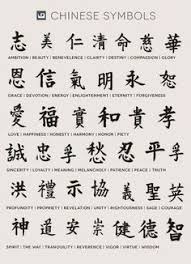 CHINESE SYMBOLS
志 美 仁 清 命 慈 華
AMBITION / BEAUTY / BENEVOLENCE / CLARITY / DESTINY / COMPASSION / GLORY
恩 信 氣 明 永 恕
GRACE / DEVOTION / ENERGY / ENLIGHTENMENT / ETERNITY / FORGIVENESS
愛 福 和 貴 孝
LOVE / HAPPINESS / HONESTY / HARMONY / HONOR / PIETY
誠 忠 孚 愁 忍 平 孚
SINCERITY / LOYALTY / MEANING / MELANCHOLY / PATIENCE / PEACE / TRUTH
洪 禮 示 協 義 聖 英
RIGHTEOUSNESS / SAGE
神 道 安 崇 健 德 智
SPIRIT / THE WAY / TRANQUILITY / REVERENCE / VIGOR / VIRTUE / WISDOM